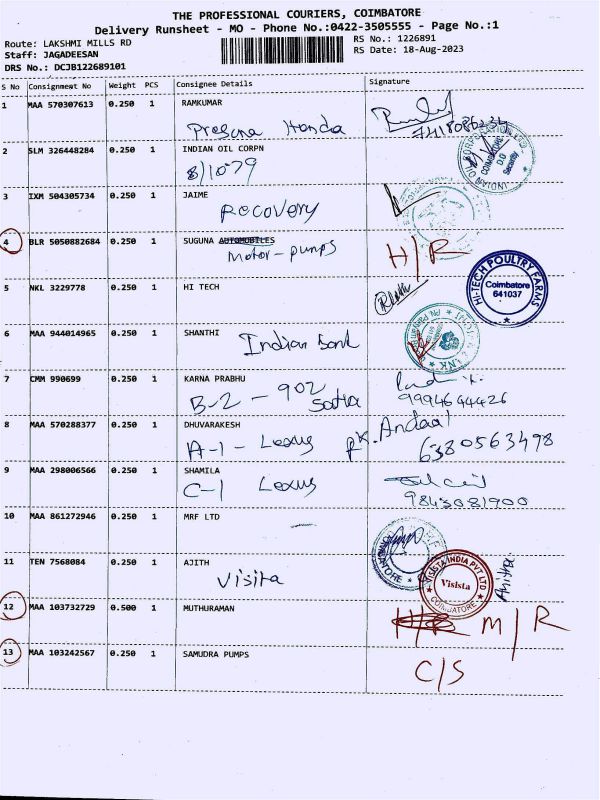 THE PROFESSIONAL COURIERS, COIMBATORE
Delivery Runsheet - MO - Phone No.:0422-3505555 - Page No.:1
Route: LAKSHMI MILLS RD
RS No.: 1226891
Staff: JAGADEESAN
RS Date: 18-Aug-2023
DRS No.: DCJB122689101
S No Consignment No Weight PCS Consignee Details Signature
1 MAA 570307613 0.250 1 RAMKUMAR
Honda
2 SLM 326448284 0.250 1 INDIAN OIL CORPN
B/1079
INDIAN OIL CORPORATION LTD COIMBATORE D.O Security
3 IXM 504305734 0.250 1 JAIME
RECOVERY
4 BLR 5050882684 0.250 1 SUGUNA AUTOMOBILES
Motor-pumps H/R
5 NKL 3229778 0.250 1 HI TECH
HI-TECH POULTRY FARMS Coimbatore 641037
6 MAA 944014965 0.250 1 SHANTHI
Indian Bank
7 CMM 990699 0.250 1 KARNA PRABHU
B-2 - 902
9994644426
8 MAA 570288377 0.250 1 DHUVARAKESH
A-1- Lexus
Andaal
6380563498
9 MAA 298006566 0.250 1 SHAMILA
C-1 Lexus
9843081900
10 MAA 861272946 0.250 1 MRF LTD
11 TEN 7568084 0.250 1 AJITH
Visita
VISISTA INDIA PVT LTD Visista COIMBATORE
12 MAA 103732729 0.500 1 MUTHURAMAN
H/R M/R
13 MAA 103242567 0.250 1 SAMUDRA PUMPS
C/S